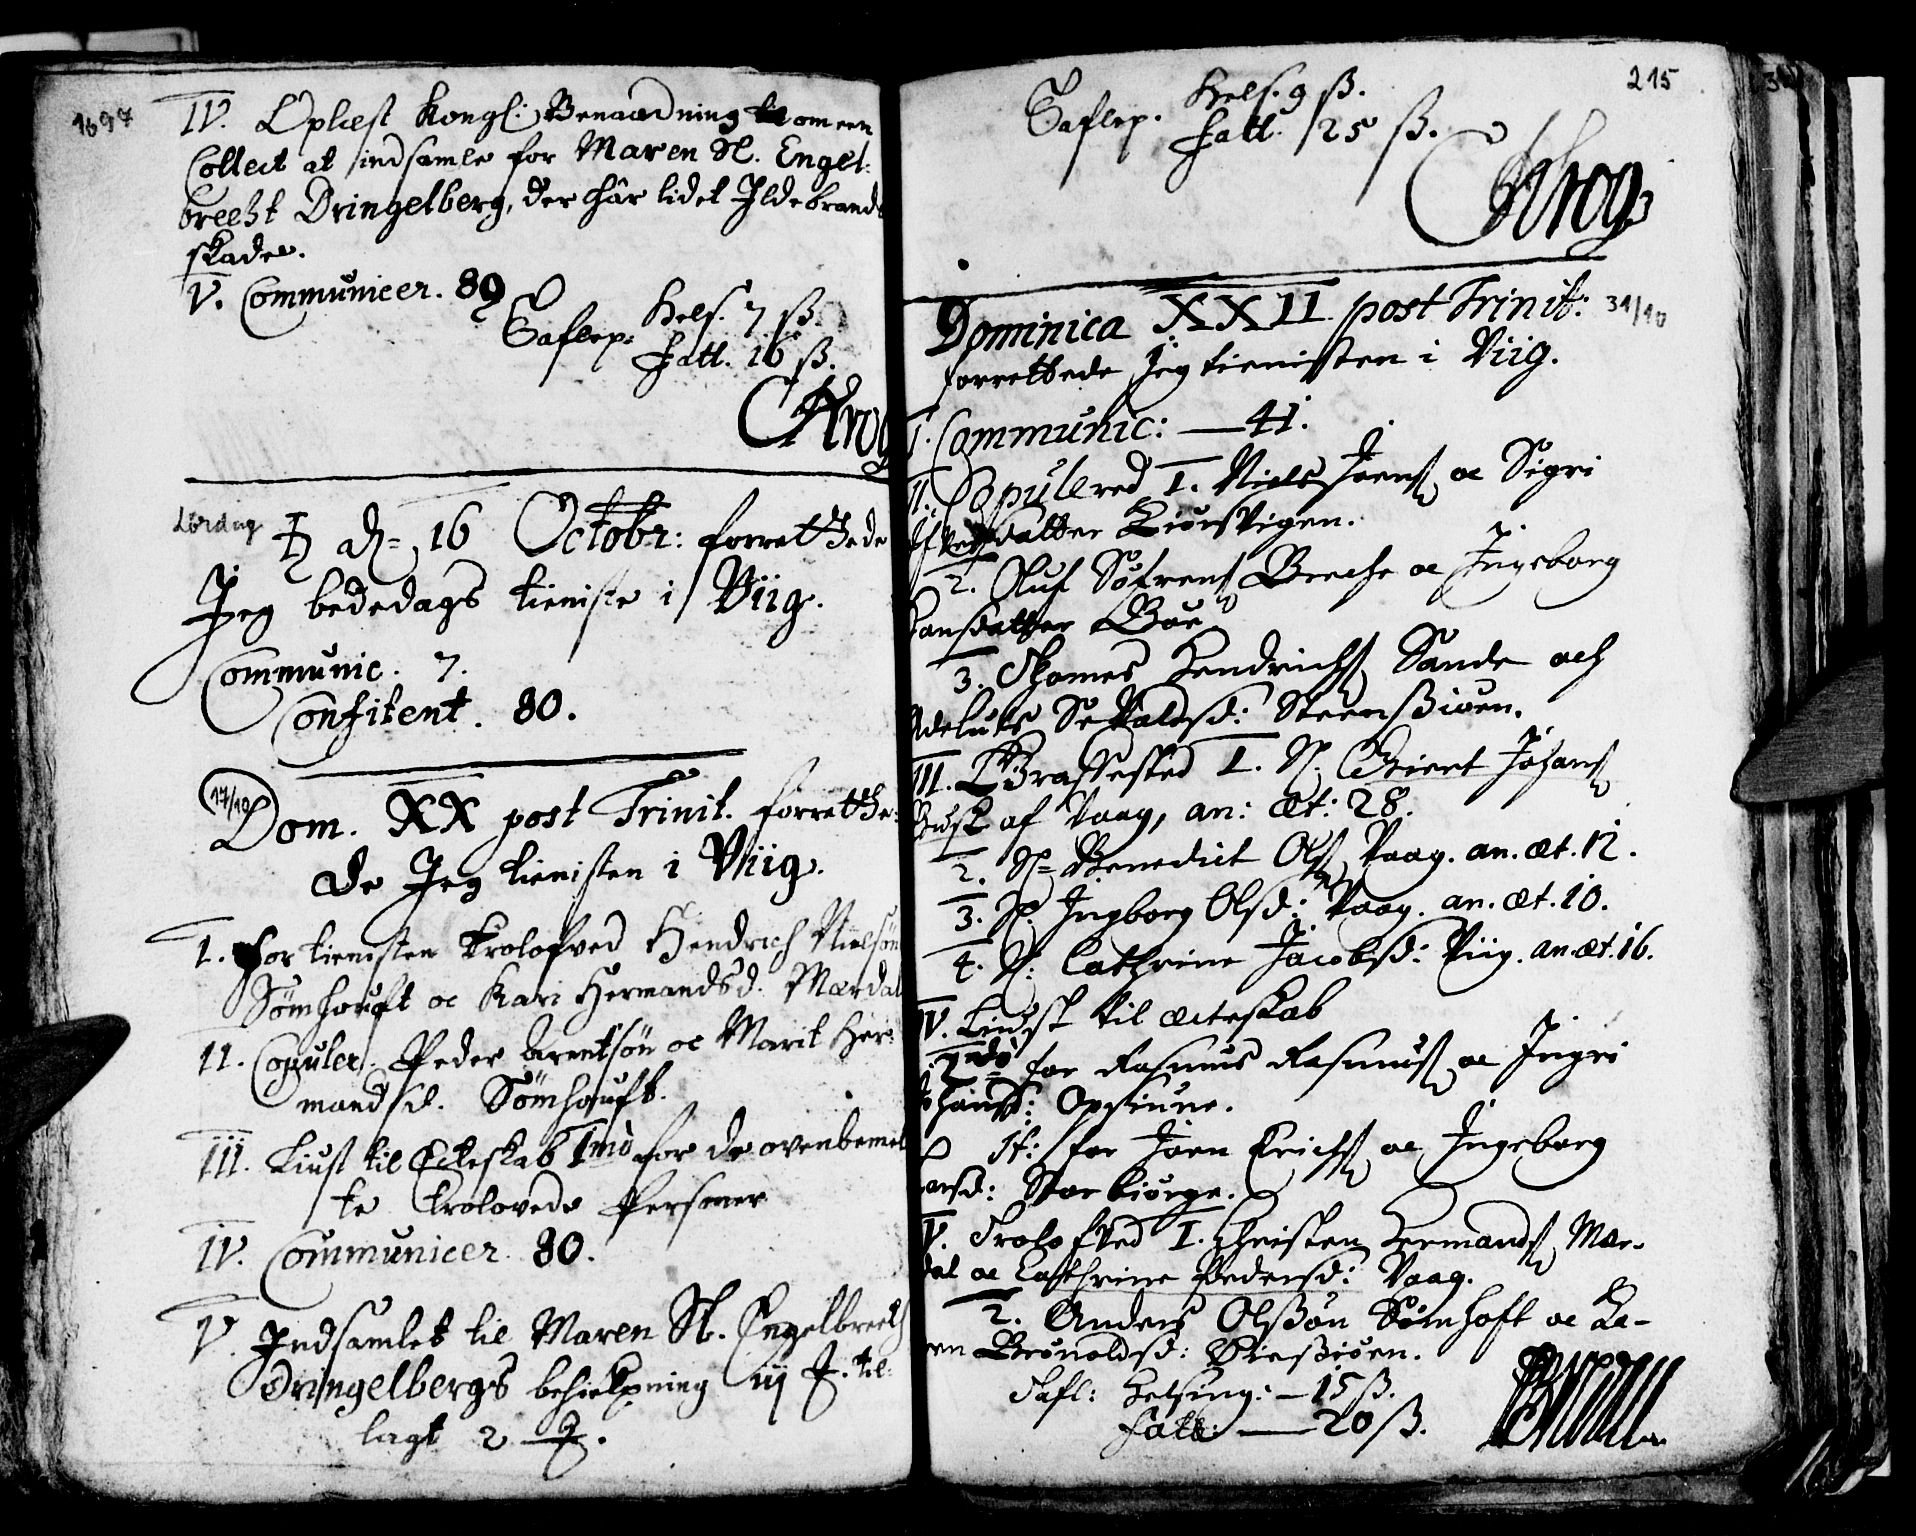 1697
IV. Oplæst Kongl: Benaadning om een
Collect at indsamle for Maren Sl. Engel:
brecht Dringelberg, der hâr lidet Ildebrands
skade.
V. Communicer. 89
Taflep: Hels. 7 ß.
Fatt. 16 ß.
CKrog
Lørdag
♄ d. 16 Octobr: forretthede
Jeg bededags tieniste i Viig.
Communic. 7.
Confitent. 80.
17/10
Dom. XX post Trinit. forretthe:
de Jeg tienisten i Viig.
I. For tienisten Trolofved Hendrich Nielsøn
Sømhouft oc Kari Hermandsd. Mærdal
II. Copuler. Peder Arentsøn oc Marit Her:
mandsd. Sømhouft.
III. Liust til Ecteskab Imo for de ovenbemel
te trolovede Personer
IV. Communicer 80.
V. Indsamlet til Maren Sl. Engelbrecth
Dringelbergs behielpning iij til:
lagt 2
215
Taflep. Hels. 9 ß.
Fatt. 25 ß.
CKrog
Dominica XXII post Trinit: 31/10
forrettede Jeg tienisten i Viig.
I. Communic: — 41.
II. Copulered 1. Niels Joens. oc Sigri
datter Kiørsvigen.
2. Oluf Søfrens. Breche oc Ingeborg
Hansdatter Bøe
3. Thomes Hendrichs. Sande och
Adeluts Sevaldsd: Steensßiøen.
III. Græssested 1. Sl. Giert Johans.
Busk af Vaag, an: æt: 28.
2. Sl. Benedict Ols. Vaag. an. æt. 12.
3. Sl. Ingborg Olsd: Vaag. an. æt. 10.
4. Sl. Cathrine Jacobsd: Viig. an. æt. 16.
IV. Liust til ecteskab
2do for Rasmus Rasmus. oc Ingri
Johansd: Opstiune.
It: for Joen Erichs. oc Ingeborg
Larsd: Storbiørge.
V. Trolofved 1. Christen Hermands. Mær-
dal oc Cathrine Pedersd: Vaag.
2. Anders Olßøn Sømhoft oc Ka-
ren Brønoldsd: Øiesßiøen.
Tafl: Helsing: — 15 ß.
Fatt: — 20 ß.